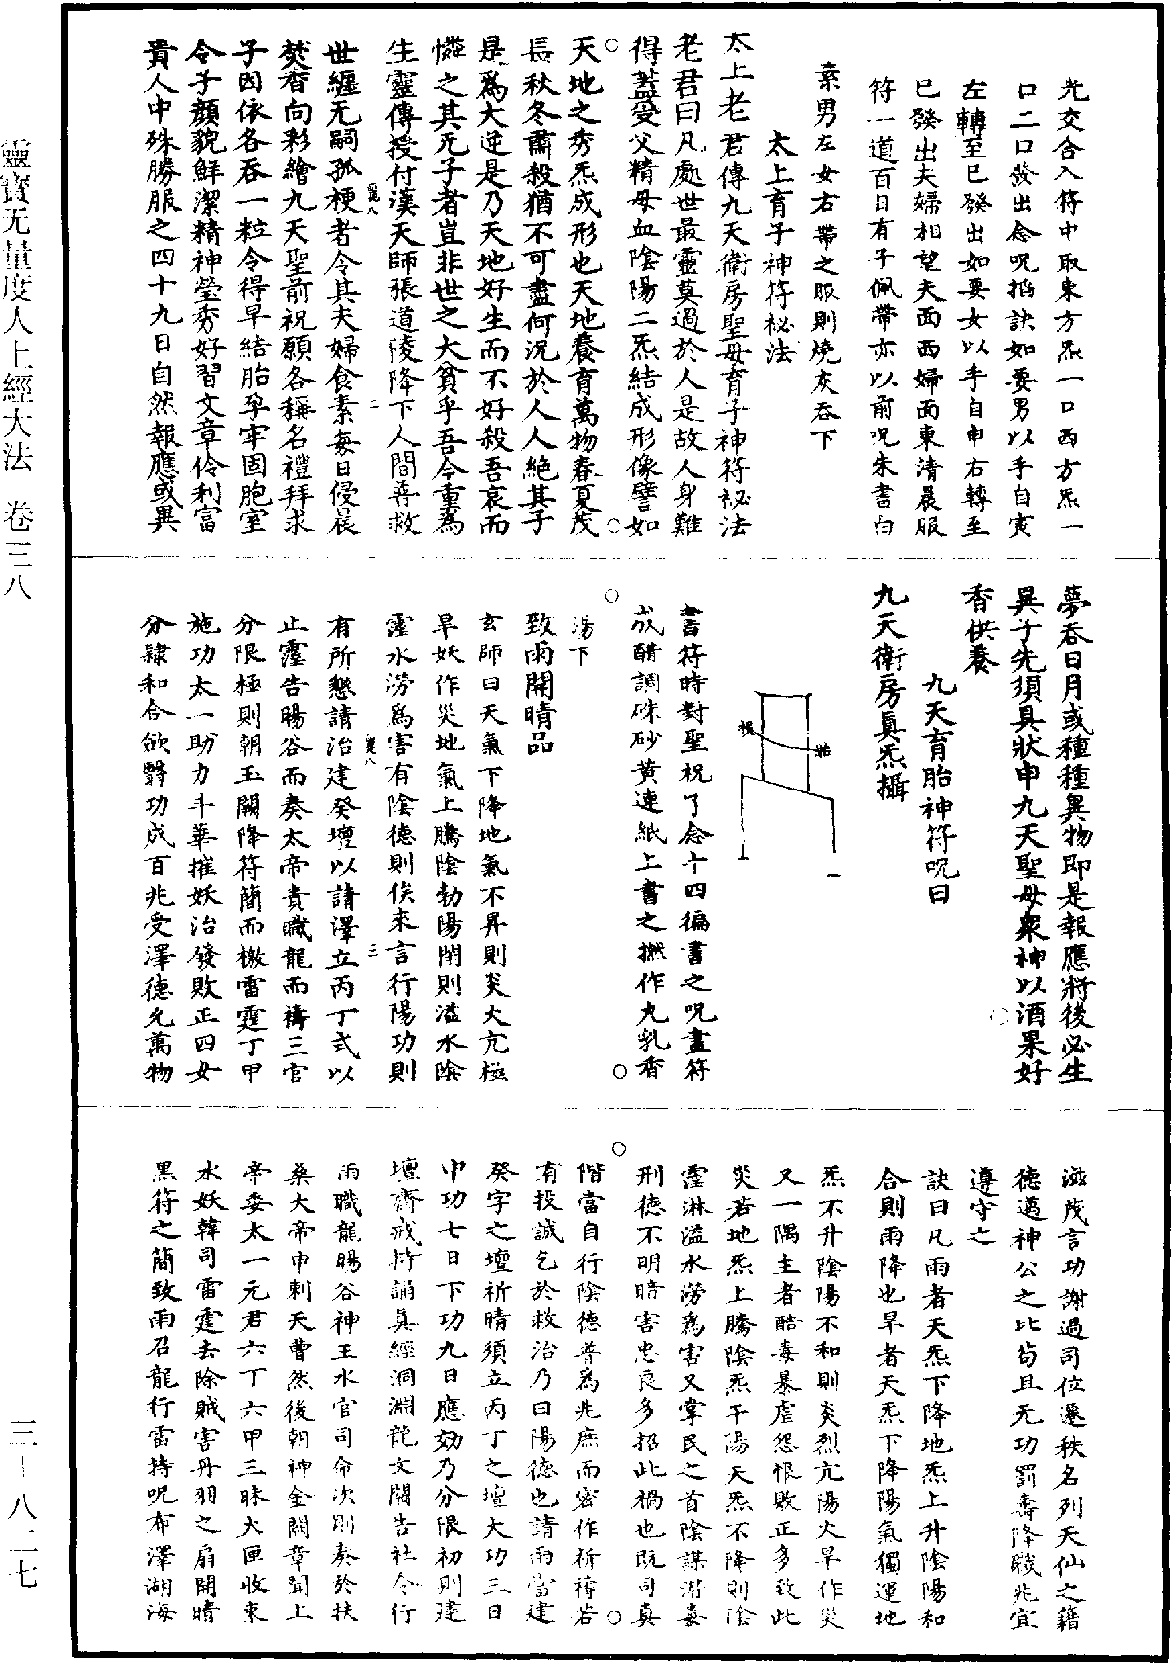 靈寶无量度人上經大法　卷三八
三—八二七
光交合入符中取東方炁一口西方炁一
口二口發出念呪掐訣如要男以手自寅
左轉至巳發出如要女以手自申右轉至
巳發出夫婦相望夫面西婦面東清晨服
符一道百日有子佩帶亦以前呪朱書白
素男左女右帶之服則燒灰吞下
太上育子神符祕法
太上老君傳九天衛房聖母育子神符祕法
老君曰凡處世最靈莫過於人是故人身難
得蓋受父精母血陰陽二炁結成形像譬如
天地之秀炁成形也天地養育萬物春夏茂
長秋冬肅殺猶不可盡何況於人人絕其子
是爲大逆是乃天地好生而不好殺吾哀而
憐之其无子者豈非世之大貧乎吾今重爲
生靈傳授付漢天師張道陵降下人間普救
世纏无嗣孤梗者令其夫婦食素每日侵晨
焚香向彩繪九天聖前祝願各稱名禮拜求
子因依各吞一粒令得早結胎孕牢固胞室
令子顏貌鮮潔精神瑩秀好習文章伶利富
貴人中殊勝服之四十九日自然報應或異
夢吞日月或種種異物即是報應將後必生
異子先須具狀申九天聖母衆神以酒果好
香供養
九天育胎神符呪曰
九天衛房眞炁攝
書符時對聖祝了念十四徧書之呪畫符
成醋調硃砂黃連紙上書之撚作丸乳香
湯下
致雨開晴品
玄師曰天氣下降地氣不昇則炎火亢極
旱妖作災地氣上騰陰勃陽閉則溢水陰
霪水澇爲害有陰德則俟來言行陽功則
有所懇請治建癸壇以請澤立丙丁式以
止霪告暘谷而奏太帝責職龍而禱三官
分限極則朝玉闕降符簡而檄雷霆丁甲
施功太一助力斗華摧妖治發敗正四女
分隸和合歛翳功成百兆受澤德允萬物
滋茂言功謝過司位遷秩名列天仙之籍
德邁神公之比苟且无功罰壽降職兆宜
遵守之
訣曰凡雨者天炁下降地炁上升陰陽和
合則雨降也旱者天炁下降陽氣獨運地
炁不升陰陽不和則炎烈亢陽火旱作災
又一隅主者酷毒暴虐怨恨敗正多致此
災若地炁上騰陰炁干陽天炁不降則陰
霪淋溢水澇爲害又掌民之首陰謀潛蠹
刑德不明暗害忠良多招此禍也既司真
階當自行陰德普爲兆庶而密作祈禱若
有投誠乞於救治乃曰陽德也請雨當建
癸字之壇祈晴須立丙丁之壇大功三日
中功七日下功九日應効乃分限初則建
壇齋戒持誦真經洞淵龍文關告社令行
雨職龍暘谷神王水官司命次則奏於扶
桑大帝申刺天曹然後朝神金闕章聞上
帝委太一元君六丁六甲三昧火匣收束
水妖韓司雷霆去除賊害丹羽之扇開晴
黑符之簡致雨召龍行雷持呪布澤湖海